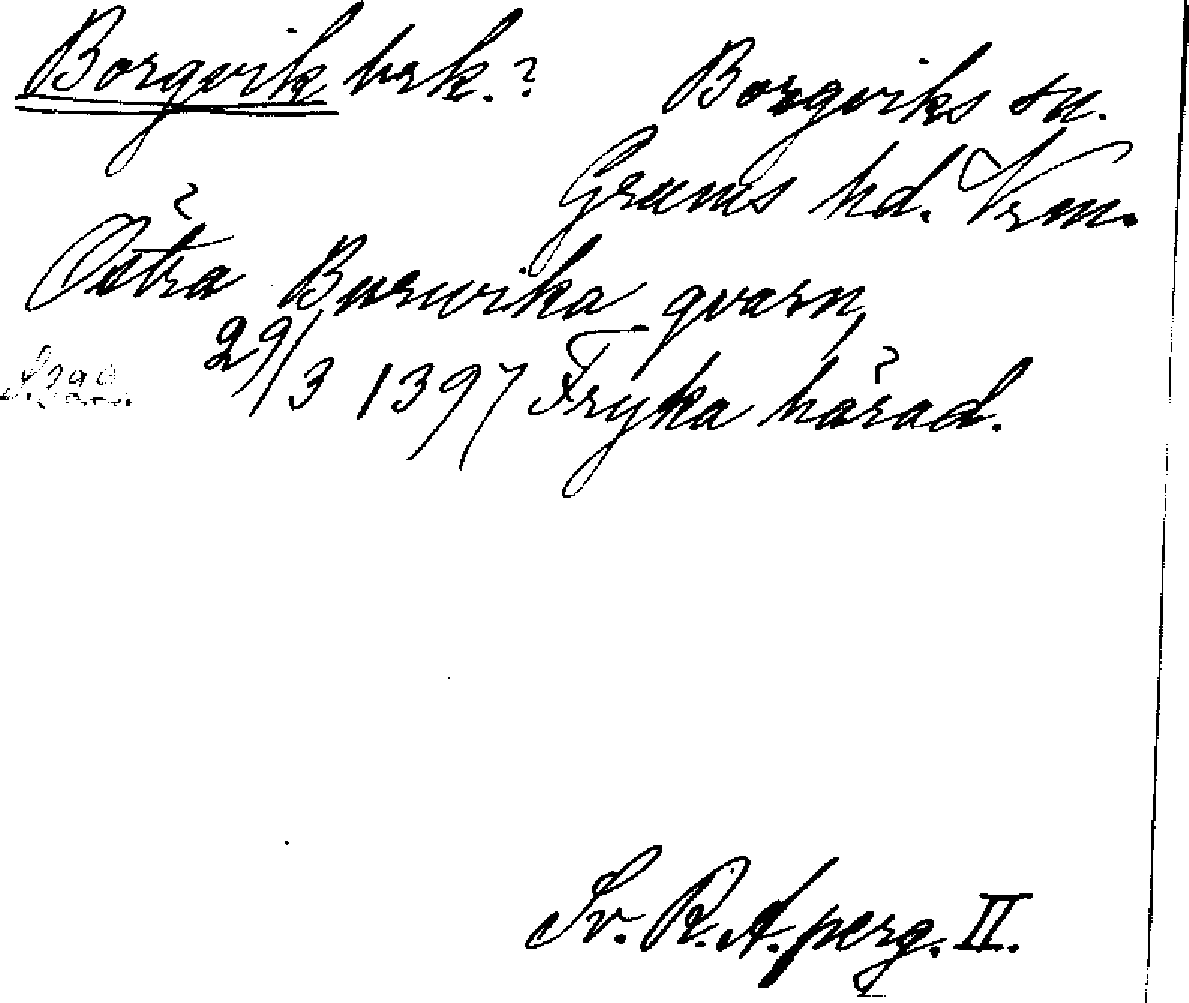 Borgvik brk.? Borgviks sn.
Grums hd. Vrm.
Östra Buruvika qvarn,
29/3 1397 Fryka härad.
Sv. R. A. perg. II.